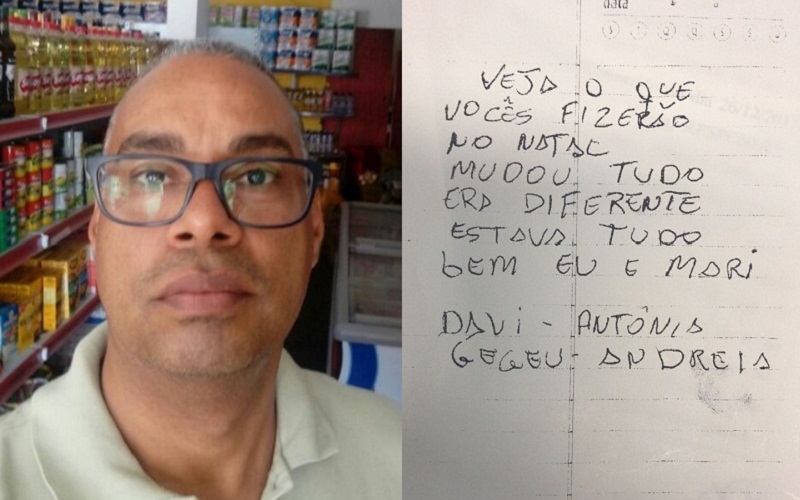 data
VEJA O QUE
VOCÊS FIZERÃO
NO NATAL
MUDOU TUDO
ERA DIFERENTE
ESTAVA TUDO
bEM EU E MARI
DAVI - ANTÔNIA
GEGEU - ANDREIA